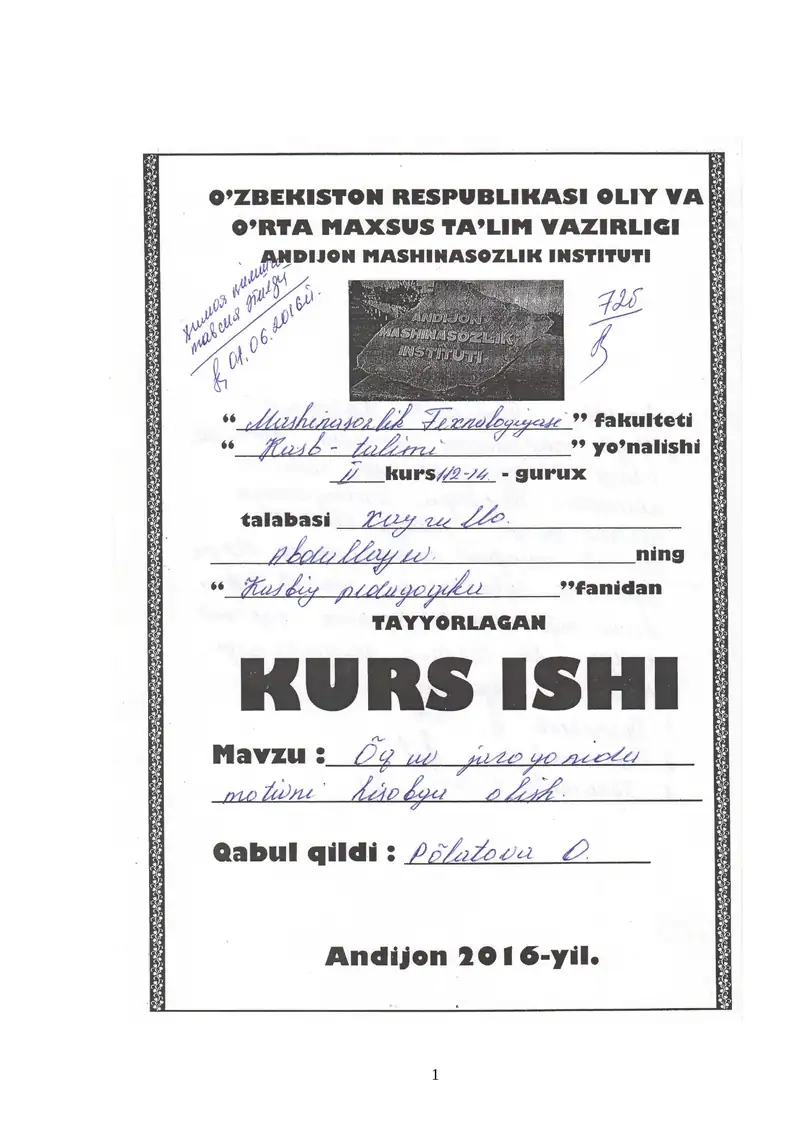 O'ZBEKISTON RESPUBLIKASI OLIY VA
O'RTA MAXSUS TA'LIM VAZIRLIGI
ANDIJON MASHINASOZLIK INSTITUTI
Химоя килишга
тавсия этилди
01.06.2016й.
ANDIJON
MASHINASOZLIK
INSTITUTI
72б
“ Mashinasozlik Texnologiyasi ” fakulteti
“ Kasb-talimi ” yo'nalishi
II kurs 112-14. - gurux
talabasi Xayrullo.
Abdullayev. ning
“ Kasbiy pedagogika ”fanidan
TAYYORLAGAN
KURS ISHI
Mavzu : Õquv jarayonida
motivni hisobga olish.
Qabul qildi : Põlatova O.
Andijon 2016-yil.
1